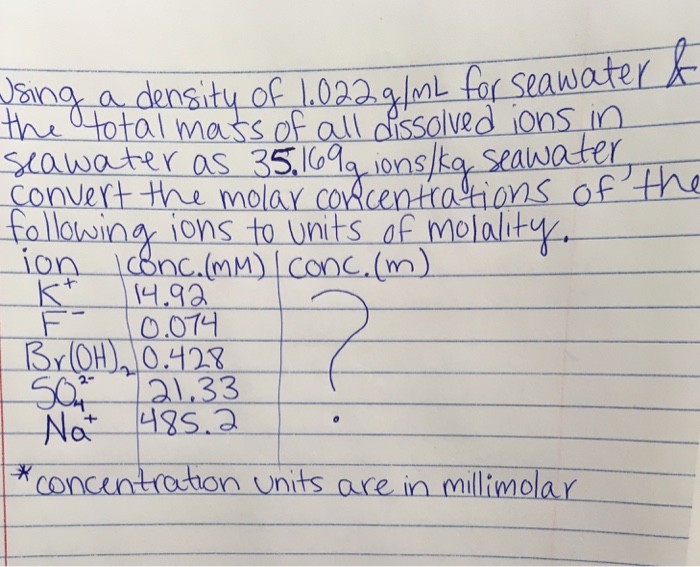 Using a density of 1.022g/mL for seawater &
the total mass of all dissolved ions in
seawater as 35.169g ions/kg seawater,
convert the molar concentrations of the
following ions to units of molality.
ion conc.(mM) conc.(m)
K⁺ 14.92
F⁻ 0.074
Br(OH)₂ 0.428
SO₄²⁻ 21.33
Na⁺ 485.2
?
*concentration units are in millimolar